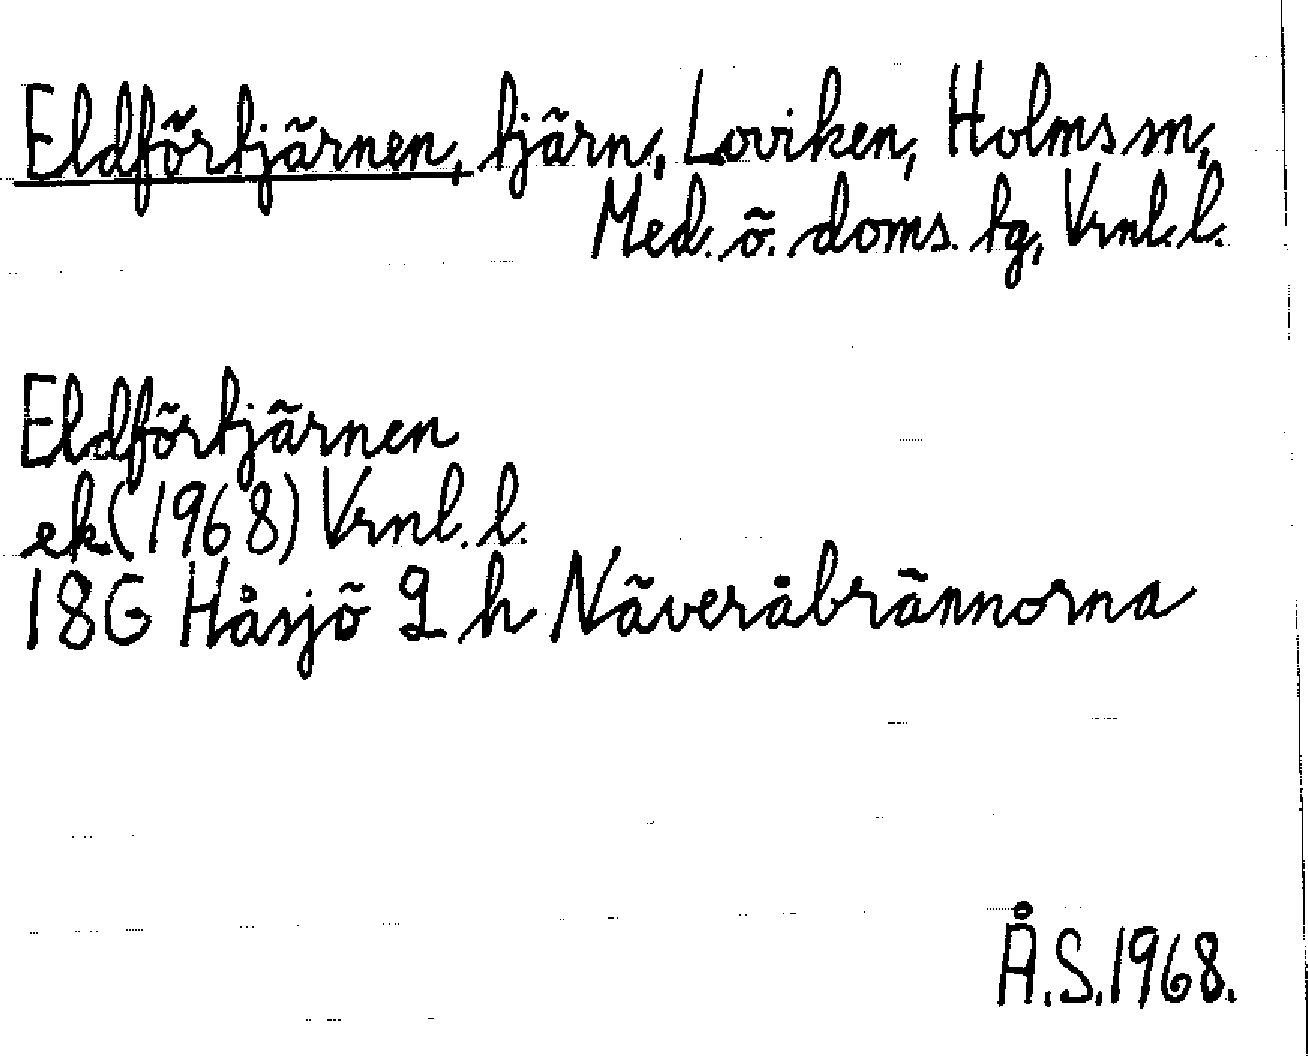 Eldförtjärnen, tjärn, Loviken, Holms sn,
Med. ö. doms. tg, Vrnl. l.
Eldförtjärnen
ek (1968) Vrnl. l.
18G Håsjö 9 h Näveråbrännorna
Å.S. 1968.